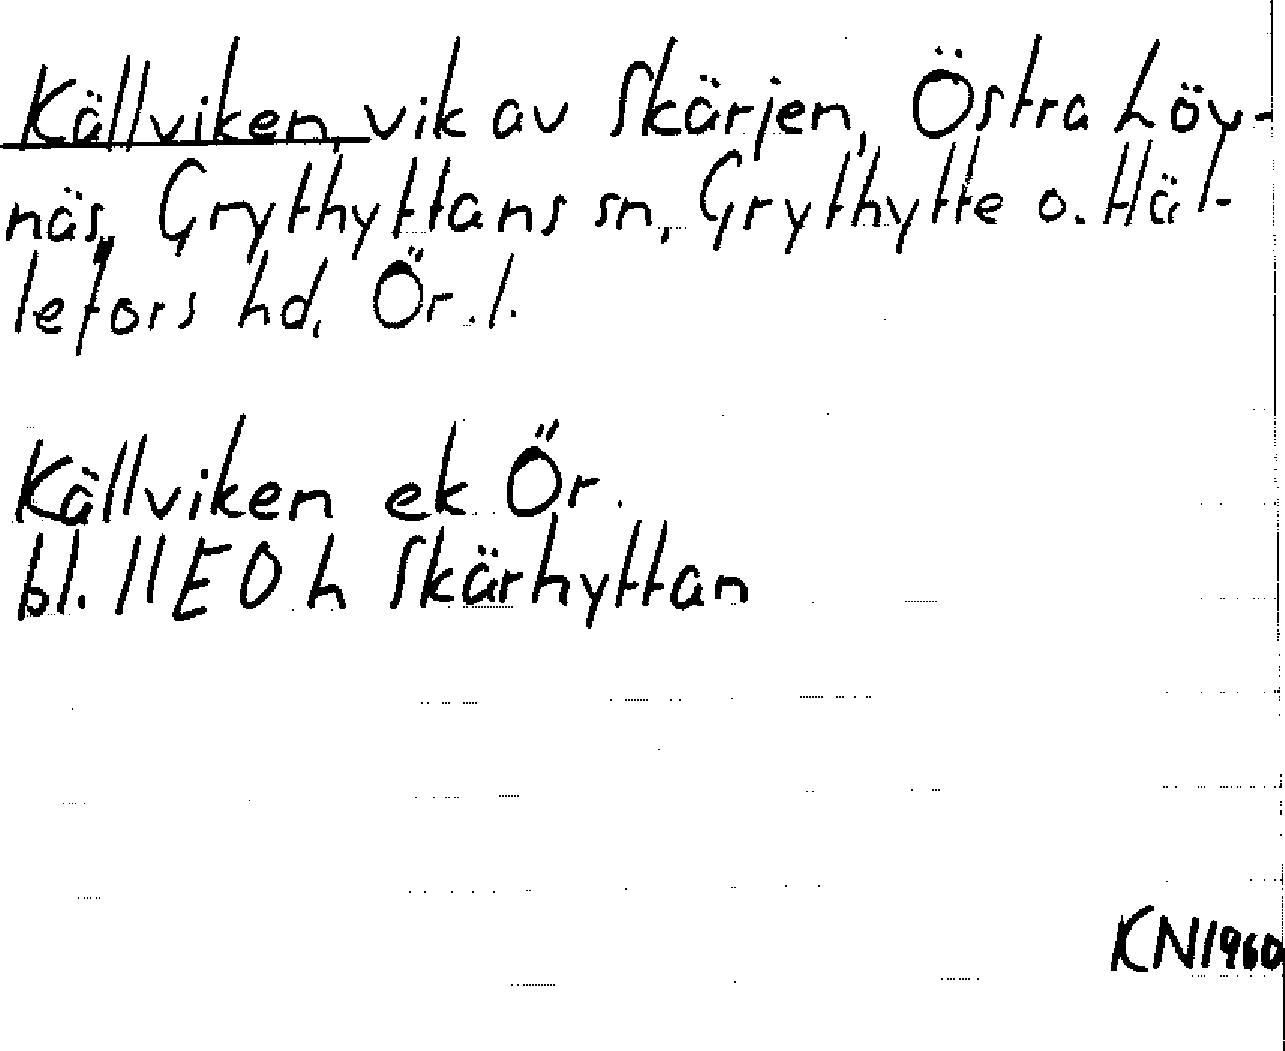 Källviken, vik av Skärjen, Östra Löv-
näs, Grythyttans sn, Grythytte o. Häl-
lefors hd, Ör. l.
Källviken ek Ör.
bl. 11 E 0 h Skärhyttan
KN 1960